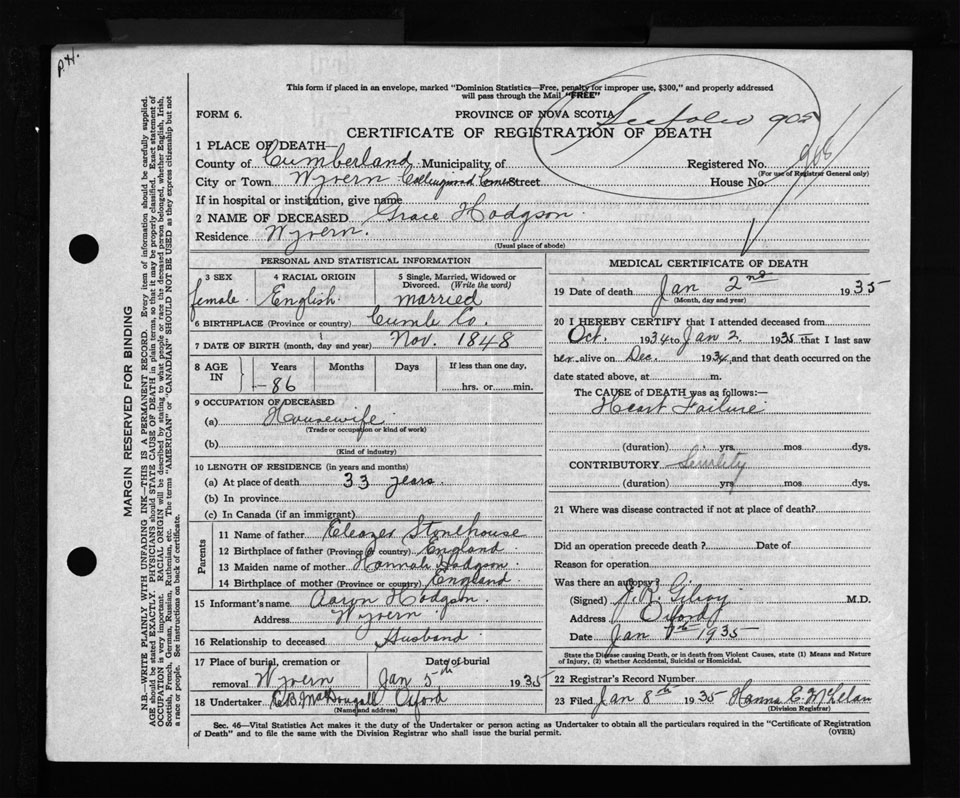 P.H.
This form if placed in an envelope, marked "Dominion Statistics—Free, penalty for improper use, $300," and properly addressed
will pass through the Mail "FREE"
FORM 6. PROVINCE OF NOVA SCOTIA
See folio 905
CERTIFICATE OF REGISTRATION OF DEATH
1 PLACE OF DEATH—
County of Cumberland Municipality of Registered No. 908
(For use of Registrar General only)
City or Town Wyvern Collingwood Corner Street House No.
If in hospital or institution, give name
2 NAME OF DECEASED Grace Hodgson
Residence Wyvern.
(Usual place of abode)
PERSONAL AND STATISTICAL INFORMATION
3 SEX 4 RACIAL ORIGIN 5 Single, Married, Widowed or
Divorced. (Write the word)
female English married
6 BIRTHPLACE (Province or country) Cumb Co.
7 DATE OF BIRTH (month, day and year) Nov. 1848
8 AGE IN Years Months Days If less than one day,
86 hrs. or min.
9 OCCUPATION OF DECEASED
(a) Housewife
(Trade or occupation or kind of work)
(b)
(Kind of industry)
10 LENGTH OF RESIDENCE (in years and months)
(a) At place of death 33 years.
(b) In province
(c) In Canada (if an immigrant)
Parents
11 Name of father Eleazer Stonehouse
12 Birthplace of father (Province or country) England
13 Maiden name of mother Hannah Hodgson
14 Birthplace of mother (Province or country) England
15 Informant's name Aaron Hodgson.
Address Wyvern
16 Relationship to deceased Husband
17 Place of burial, cremation or Date of burial
removal Wyvern Jan 5th 1935
18 Undertaker MacDougall Oxford
(Name and address)
MEDICAL CERTIFICATE OF DEATH
19 Date of death Jan 2nd 1935
(Month, day and year)
20 I HEREBY CERTIFY that I attended deceased from
Oct. 1934 to Jan 2. 1935 that I last saw
her alive on Dec. 1934, and that death occurred on the
date stated above, at m.
The CAUSE of DEATH was as follows:—
Heart Failure
(duration) yrs. mos dys.
CONTRIBUTORY Senility
(duration) yrs mos dys.
21 Where was disease contracted if not at place of death?
Did an operation precede death? Date of
Reason for operation
Was there an autopsy?
(Signed) J. R. Gilroy M.D.
Address Oxford
Date Jan 1935
State the Disease causing Death, or in death from Violent Causes, state (1) Means and Nature
of Injury, (2) whether Accidental, Suicidal or Homicidal.
22 Registrar's Record Number
23 Filed Jan 8th 1935 Hanna E. McLelan
(Division Registrar)
Sec. 46—Vital Statistics Act makes it the duty of the Undertaker or person acting as Undertaker to obtain all the particulars required in the "Certificate of Registration
of Death" and to file the same with the Division Registrar who shall issue the burial permit. (OVER)
MARGIN RESERVED FOR BINDING
N.B.—WRITE PLAINLY WITH UNFADING INK—THIS IS A PERMANENT RECORD. Every item of information should be carefully supplied.
AGE should be stated EXACTLY. PHYSICIANS should STATE CAUSE OF DEATH in plain terms, so that it may be properly classified. Exact statement of
OCCUPATION is very important. RACIAL ORIGIN will be described by stating to what people or race the deceased person belonged, whether English, Irish,
Scottish, French, German, Russian, Ruthenian, etc. The terms "AMERICAN" or "CANADIAN" SHOULD NOT BE USED as they express citizenship but not
a race or people. See instructions on back of certificate.